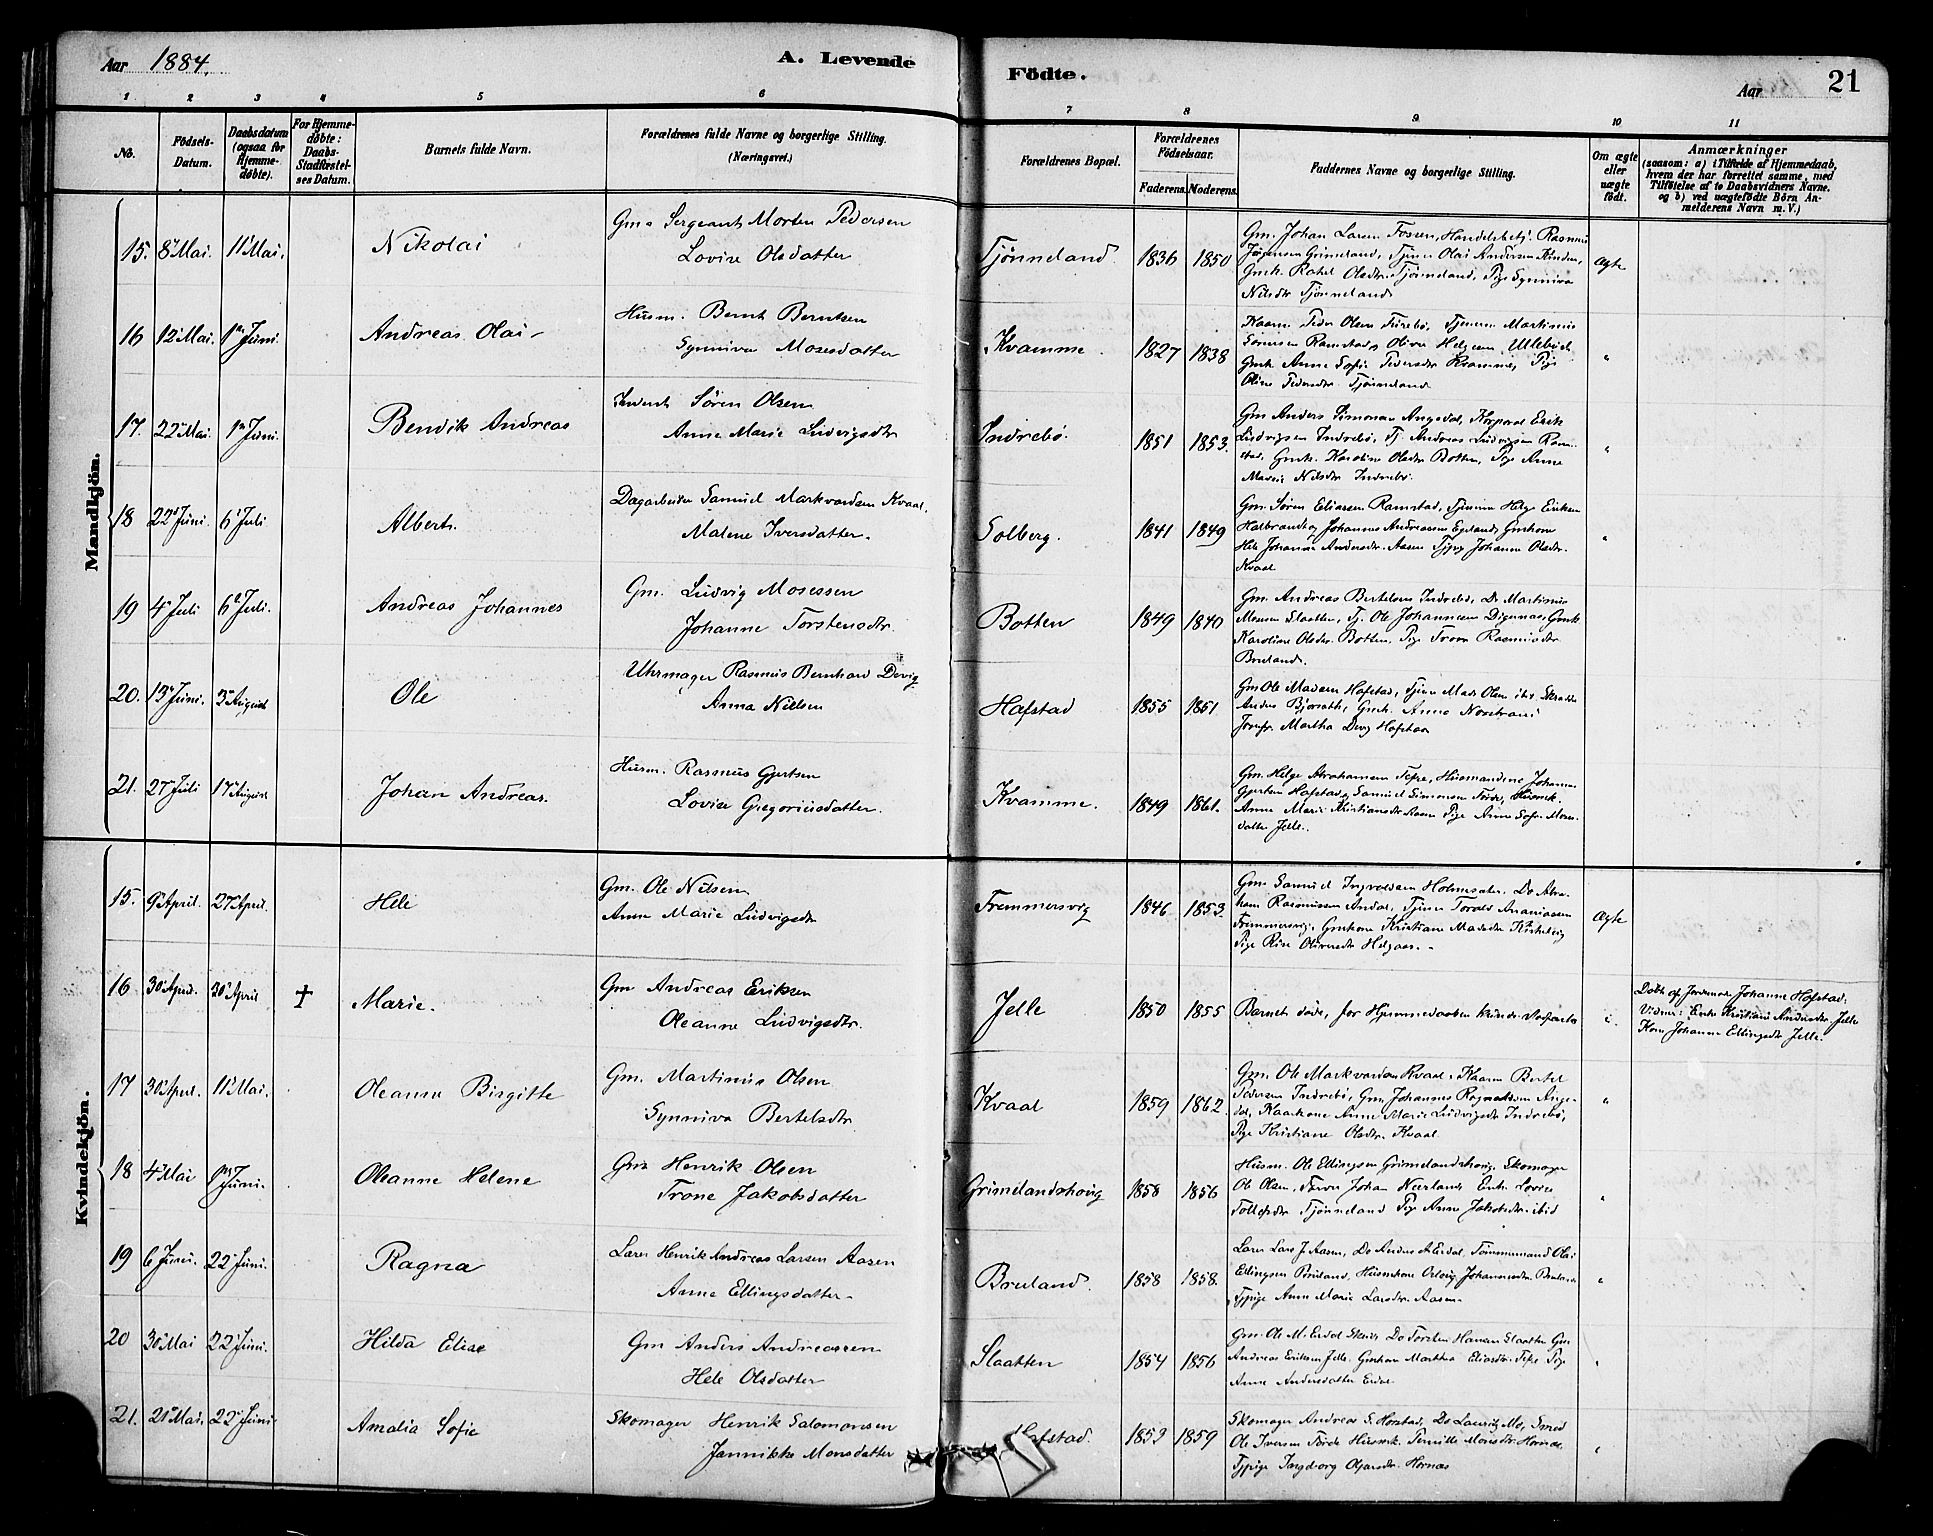 Aar 1884.
A. Levende
Födte.
Aar
21
1 2 3 4 5 6 7 8 9 10 11
No.
Födsels-
Datum.
Daabsdatum
(ogsaa for
Hjemme-
døbte).
For Hjemme-
døbte:
Daabs-
Stadfæstel-
ses Datum.
Barnets fulde Navn.
Forældrenes fulde Navne og borgerlige Stilling.
(Næringsvei.)
Forældrenes Bopæl.
Forældrenes
Födselsaar.
Faderens. Moderens.
Faddernes Navne og borgerlige Stilling.
Om ægte
eller
uægte
födt.
Anmærkninger
(saasom: a) i Tilfælde af Hjemmedaab,
hvem der har forrettet samme, med
Tilføielse af to Daabsvidners Navne.
og b) ved uægtefödte Börn An-
melderens Navn m.V.)
Mandkjön.
15. 8 Mai. 11 Mai. Nikolai
Gm. Sergeant Morten Pedersen
Lovise Olsdatter
Tjønneland 1836 1850
Gm. Johan Larsen Fossen, Handelsbetj. Rasmus
Jørgensen Grimeland, Tjener Olai Andersen
Gmk. Rakel Olsdtr. Tjønneland, Pige Synniva
Nilsdtr Tjønneland
Ægte
16 12 Mai. 1 Juni. Andreas Olai
Husm. Bernt Berntsen
Synniva Mosesdatter
Kvamme. 1827 1838
Kaarm. Peder Olsen Furebø, Tjenern. Martinius
Sørensen Ramstad, Oliver Helgesen Ullebust
Gmk. Anne Sofie Pedersdtr Kvamme, Pige
Oline Pedersdtr. Tjønneland
"
17. 22 Mai. 1 Juni. Bendik Andreas
Inderst Søren Olsen
Anne Marie Ludvigsdtr
Indrebø. 1851 1853.
Gm Anders Simonsen Angedal, Korporal Erik
Ludvigsen Indrebø, Tj. Andreas Ludvigsen Ram-
stad, Gmk. Karoline Olsdtr Botten, Pige Anne
Marie Nilsdtr Indrebø.
"
18 22 Juni. 6 Juli Albert.
Dagarbeider Samuel Markvardsen Kvaal.
Malene Iversdatter.
Solberg. 1841 1849
Gm. Søren Eliassen Ramstad, Tjenerne Helge Eriksen
Halbrend og Johannes Andreassen Egeland, Gmkone
Hele Johanne Andersdtr. Aasen Tjpige Johanne Olsdtr.
Kvaal
"
19 4 Juli 6 Juli. Andreas Johannes
Gm. Ludvig Mosessen
Johanne Torstensdtr.
Botten 1849 1840
Gm. Andreas Bertelsen Indrebø, Do Martinius
Monsen Slaatten, Tj. Ole Johannessen Digernæs, Gmk
Karoline Olsdtr. Botten, Pige Trone Rasmusdtr.
Bruland.
20. 13 Juni. 3 August Ole
Uhrmager Rasmus Bernhard Devig
Anna Nielsen
Hafstad 1855 1851.
Gm Ole Madsen Hafstad, Tjener Mads Olsen ibid Skrædder
Anders, Gmk. Anne
Jomfr. Martha Devig Hafstad
21. 27 Juli 17 August Johan Andreas.
Husm. Rasmus Gjertsen
Lovise Gregoriusdatter.
Kvamme. 1849 1861.
Gm. Helge Abrahamsen Tefre, Husmændene Johannes
Gjertsen Hafstad, Samuel Simonsen Førde, Husmk.
Anne Marie Kristiansdtr Aasen Pige Anne Sofie Mons-
datter Jelle.
Kvindekjön.
15. 9 April. 27 April. Hele
Gm. Ole Nilsen
Anne Marie Ludvigsdtr
Fremmersvig 1846 1853.
Gm. Samuel Ingvaldsen Holmesæter. Do Abra-
ham Rasmussen Andal, Tjener Torvald Ananiassen
Fremmersvig, Gmkone Kristiane Madsdtr
Pige Rise Oliversdtr Helgaas.
Ægte
16 30 April. 30 April † Marie.
Gm Andreas Eriksen
Oleanne Ludvigsdtr.
Jelle 1850 1855
Barnet døde, før Hjemmedaaben kunde stadfæstes
Døbt af Jordemoder Johanne Hafstad.
Vidner: Enke Kristiane Andersdtr. Jelle
Kone Johanne Ellingsdtr Jelle.
17 30 April. 11 Mai. Oleanne Birgitte
Gm. Martinus Olsen
Synniva Bertelsdtr
Kvaal 1859 1862.
Gm. Ole Markvardsen Kvaal. Kaarm Bertel
Pedersen Indrebø, Gm. Johannes Rognaldsen Ange-
dal, Kaarkone Anne Marie Ludvigsdtr Indrebø,
Pige Kristiane Olsdtr. Kvaal.
"
18 4 Mai 1 Juni. Oleanne Helene
Gm Henrik Olsen
Trone Jakobsdatter
Grimelandshoug 1858 1856
Husm. Ole Ellingsen Grimelandshoug. Skomager
Ole Olsen, Farver Johan Neerland, Enke Lovise
Tollefsdtr Tjønneland Pige Anne Jakobsdtr. ibid
"
19 6 Juni. 22 Juni. Ragna
Lærer Henrik Andreas Larsen Aasen
Anne Ellingsdatter
Bruland. 1858 1858.
Lærer Lars J. Aasen, Do Anders A Erdal, Tømmermand Olai
Ellingsen Bruland, Husmkone Johannesdtr. Bruland
Tjpige Anne Marie Larsdtr. Aasen.
"
20 30 Mai 22 Juni. Hilda Elise
Gm Anders Andreassen
Hele Olsdatter
Slaatten 1854 1856
Gm. Ole M. Erdal Do Torsten Hansen Slaatten Gm
Andreas Eriksen Jelle. Gmkone Martha Eliasdtr. Tefre Pige
Anne Andersdatter Erdal
"
21. 21 Mai. 22 Juni. Amalia Sofie
Skomager Henrik Salomonsen
Jannikke Monsdatter
Hafstad. 1853 1859
Skomager Andreas S. Horstad, Do Lauritz Mo, Smed
Ole Iversen Førde Husmk. Pernille Monsdtr. Hornæs.
Tjpige Ingeborg Hornæs
"